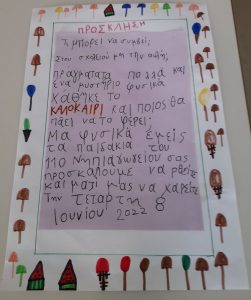 ΠΡΟΣΚΛΗΣΗ
Τι μπορεί να συμβεί;
Στου σχολειού μη την αυλή;
Πράγματα πολλά και
ένα μυστήριο φυσικά
χάθηκε το
ΚΑΛΟΚΑΙΡΙ και ποιος θα
πάει να το φέρει;
Μα φυσικά εμείς
τα παιδάκια του
11ο Νηπιαγωγείου σας
προσκαλούμε να ρθείτε
και μαζί μας να χαρείτε
Την ΤΕΤΑΡΤΗ 8
Ιουνίου 2022